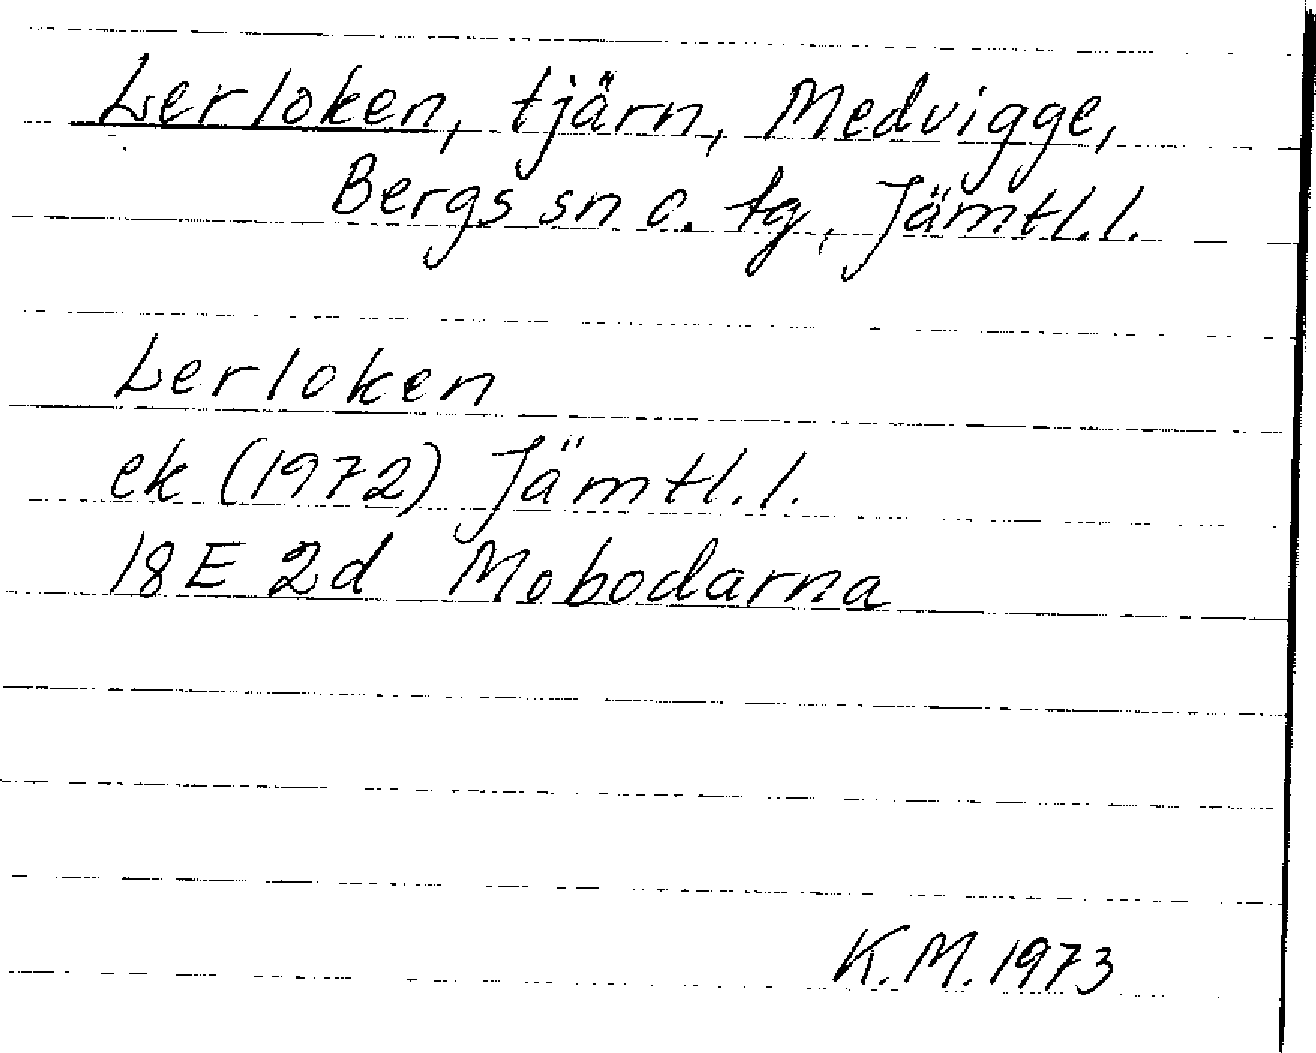 Lerloken, tjärn, Medvigge,
Bergs sn o. tg, Jämtl.l.
Lerloken
ek (1972) Jämtl.l.
18E 2d Mobodarna
K.M. 1973